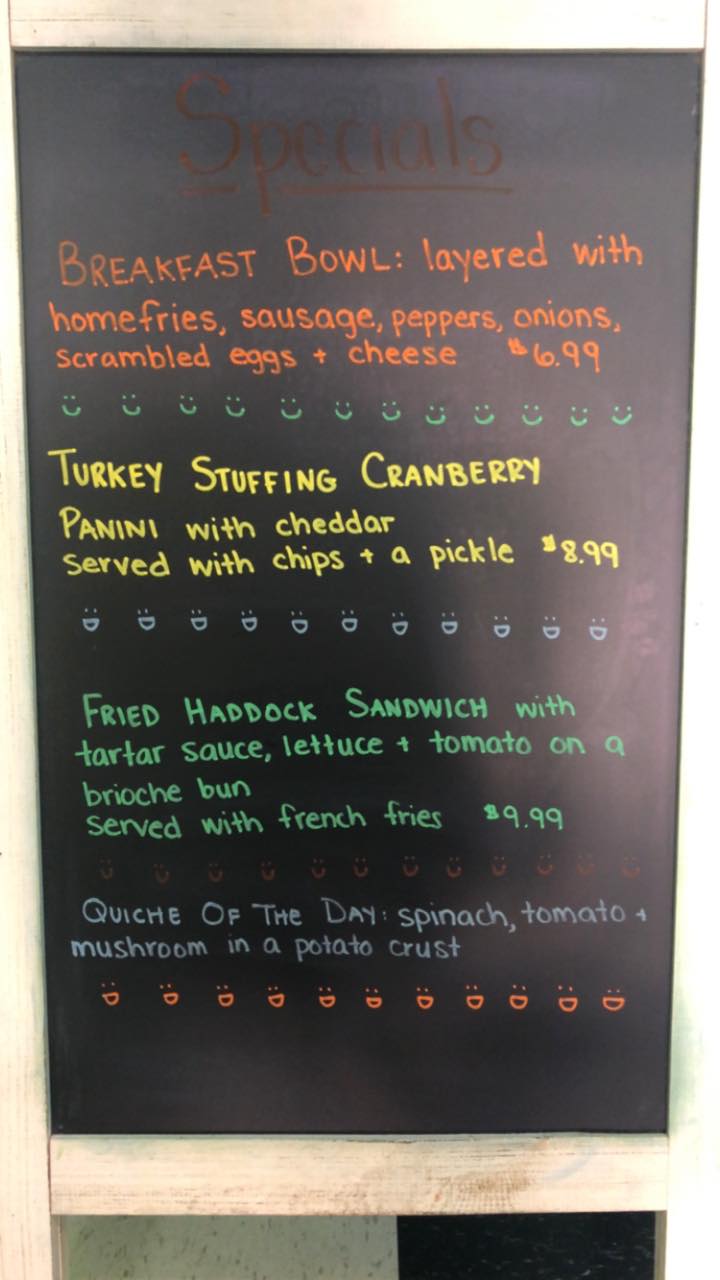 Specials
BREAKFAST BOWL: layered with
homefries, sausage, peppers, onions,
scrambled eggs + cheese $6.99
TURKEY STUFFING CRANBERRY
PANINI with cheddar
served with chips + a pickle $8.99
FRIED HADDOCK SANDWICH with
tartar sauce, lettuce + tomato on a
brioche bun
served with french fries $9.99
QUICHE OF THE DAY: spinach, tomato +
mushroom in a potato crust